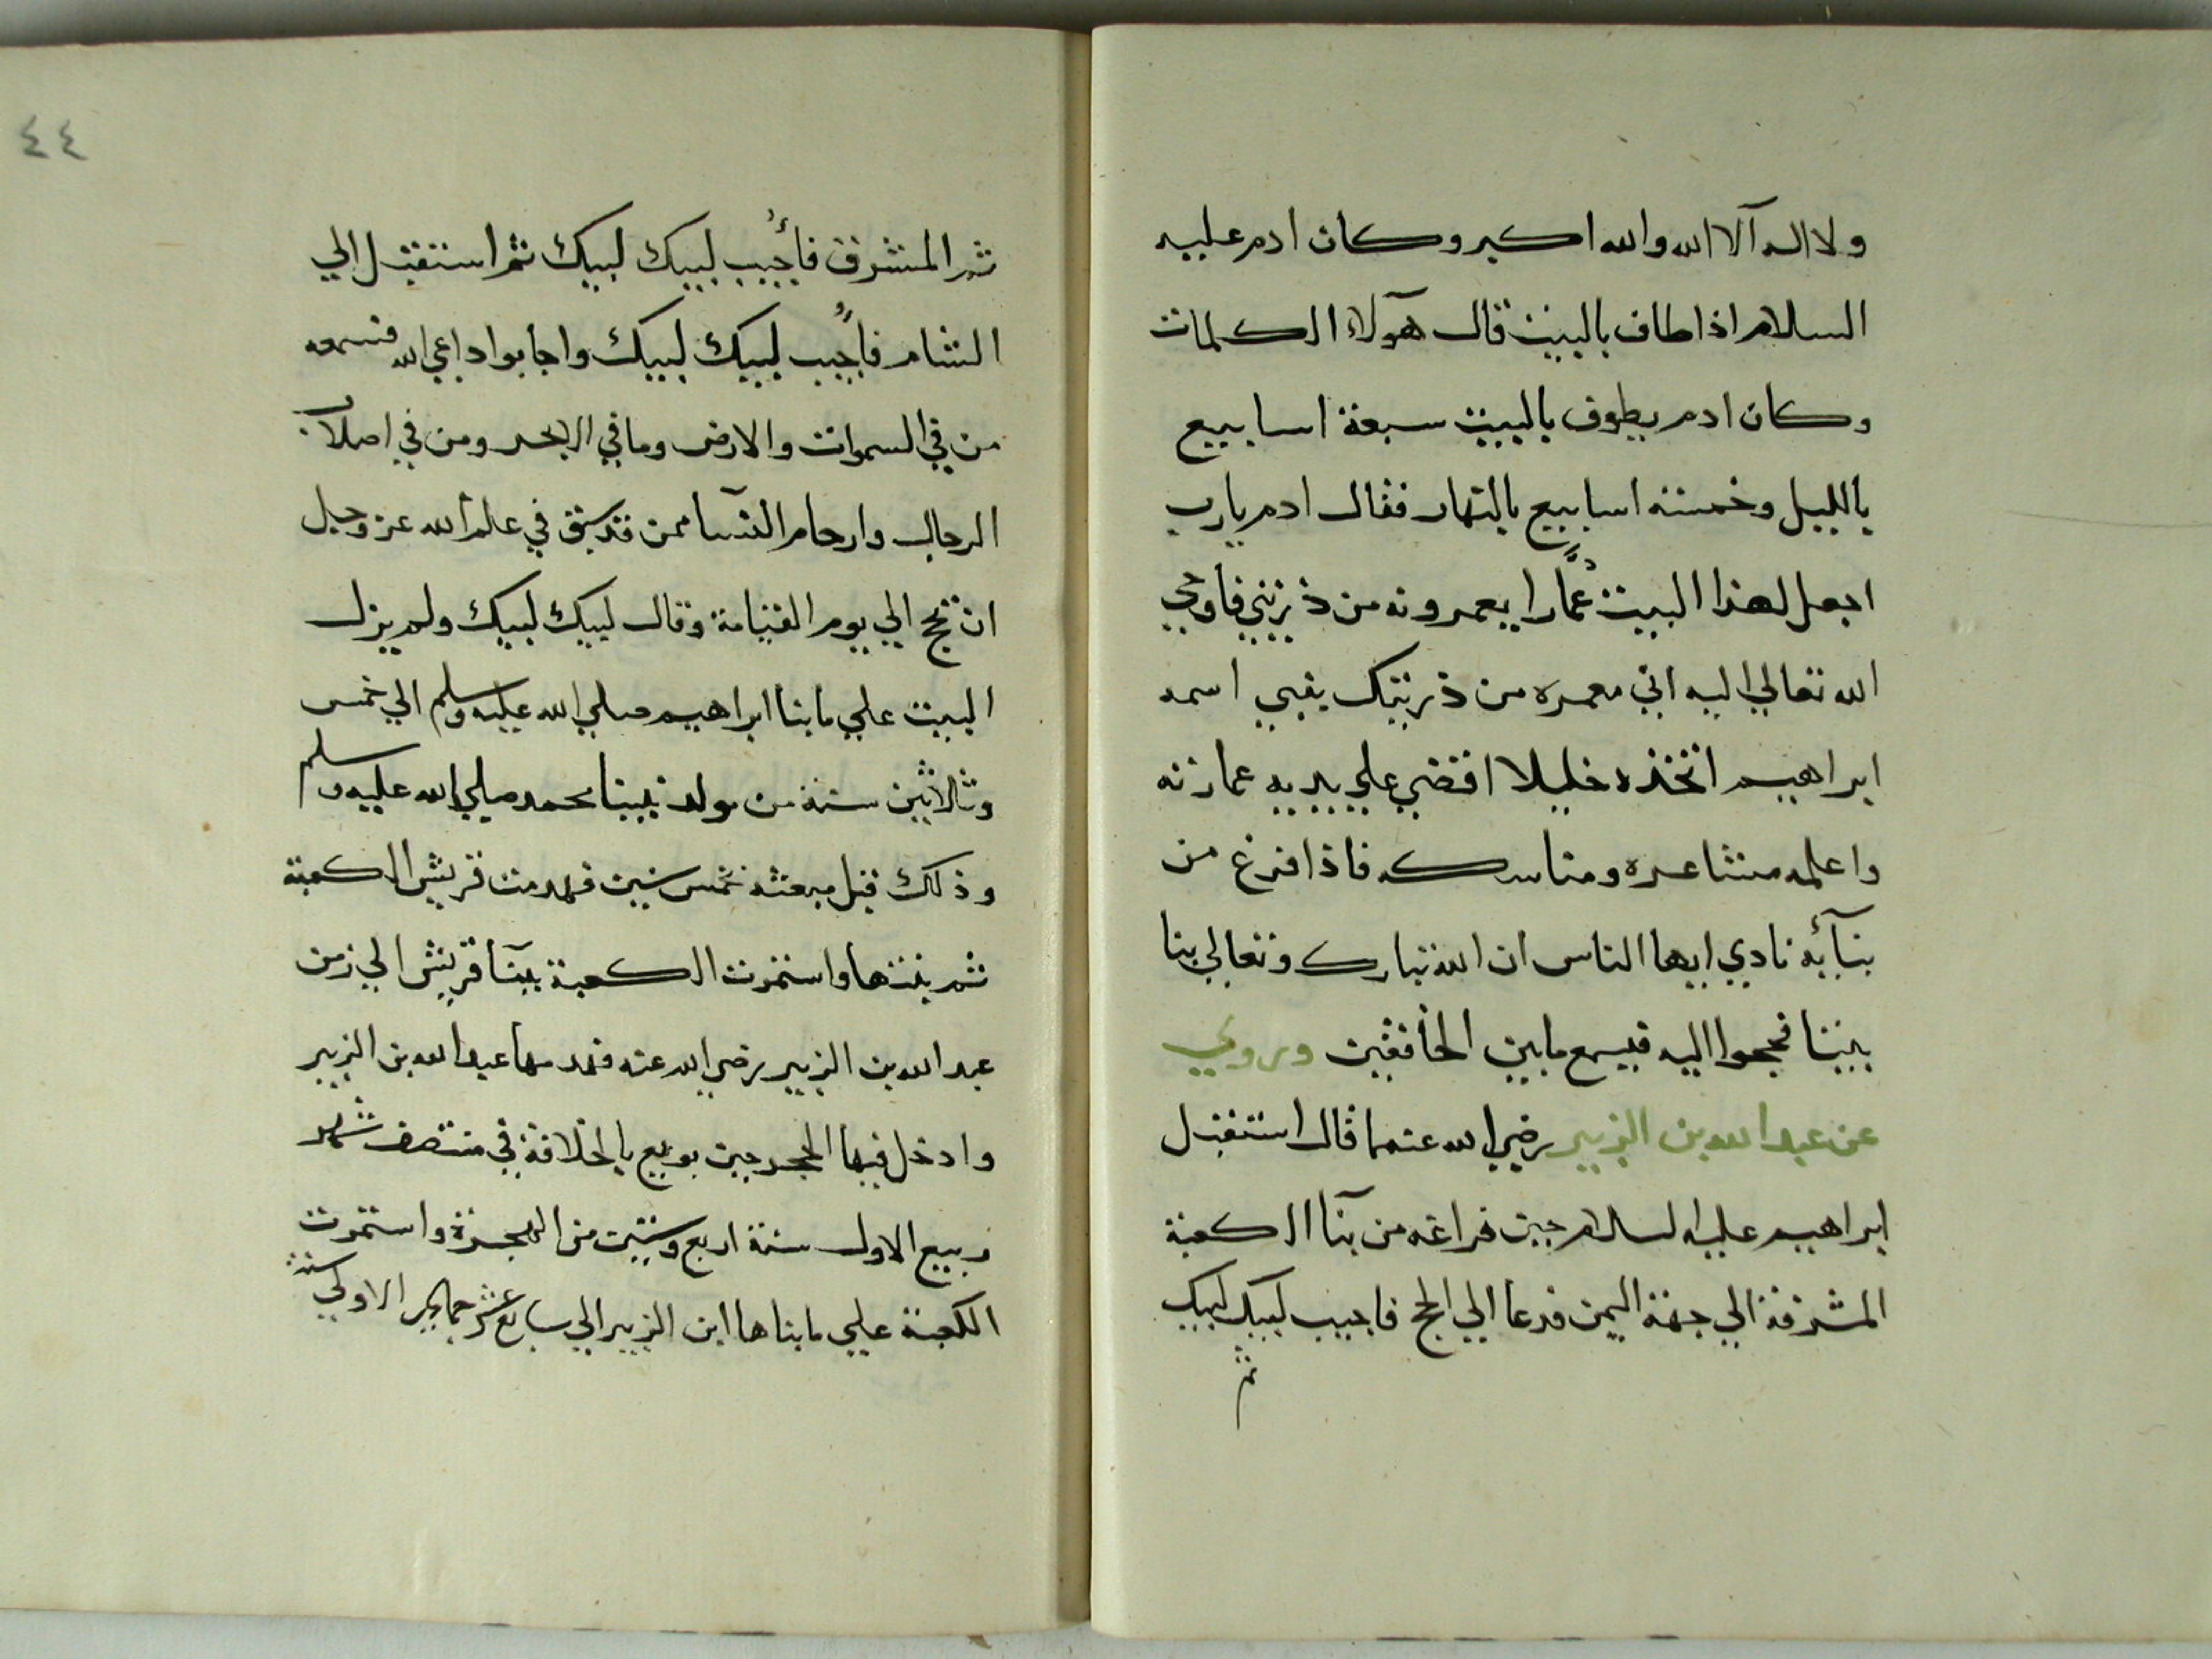 ولا اله الا الله والله اكبر وكان ادم عليه
السلام اذا طاف بالبيت قال هؤلاء الكلمات
وكان ادم يطوف بالبيت سبعة اسابيع
بالليل وخمسة اسابيع بالنهار فقال ادم يارب
اجعل لهذا البيت عُمَّارا يعمرونه من ذريتي فاوحي
الله تعالي اليه اني معمره من ذريتك بنبي اسمه
ابراهيم اتخذه خليلا اقضي علي يديه عمارته
واعلمه مشاعره ومناسكه فاذا فرغ من
بنآئه نادي ايها الناس ان الله تبارك وتعالي بنا
بيتا فحجوا اليه فيسمع مابين الخافقين وروي
عن عبد الله بن الزبير رضي الله عنهما قال استقبل
ابراهيم عليه السلام حين فراغه من بنآ الكعبة
المشرفة الي جهة اليمن فدعا الي الحج فاجيب لبيك لبيك
ثم
٤٤
ثم المشرق فأُجيب لبيك لبيك ثم استقبل الي
الشام فأُجيب لبيك لبيك واجابوا داعي الله فسمعه
من في السموات والارض وما في الابحر ومن في اصلاب
الرجال وارحام النسآ ممن قد سبق في علم الله عز وجل
ان يحج الي يوم القيامة وقال لبيك لبيك ولم يزل
البيت علي ما بنا ابراهيم صلي الله عليه وسلم الي خمس
وثلاثين سنة من مولد نبينا محمد صلي الله عليه وسلم
وذلك قبل مبعثه بخمس سنين فهدمت قريش الكعبة
ثم بنتها واستمرت الكعبة ببنآ قريش الي زمن
عبد الله بن الزبير رضي الله عنه فهدمها عبد الله بن الزبير
وادخل فيها الحجر حين بويع بالخلافة في منتصف شهر
ربيع الاول سنة اربع وستين من الهجرة واستمرت
الكعبة علي ما بناها ابن الزبير الي سابع عشر جمادي الاولي سنة